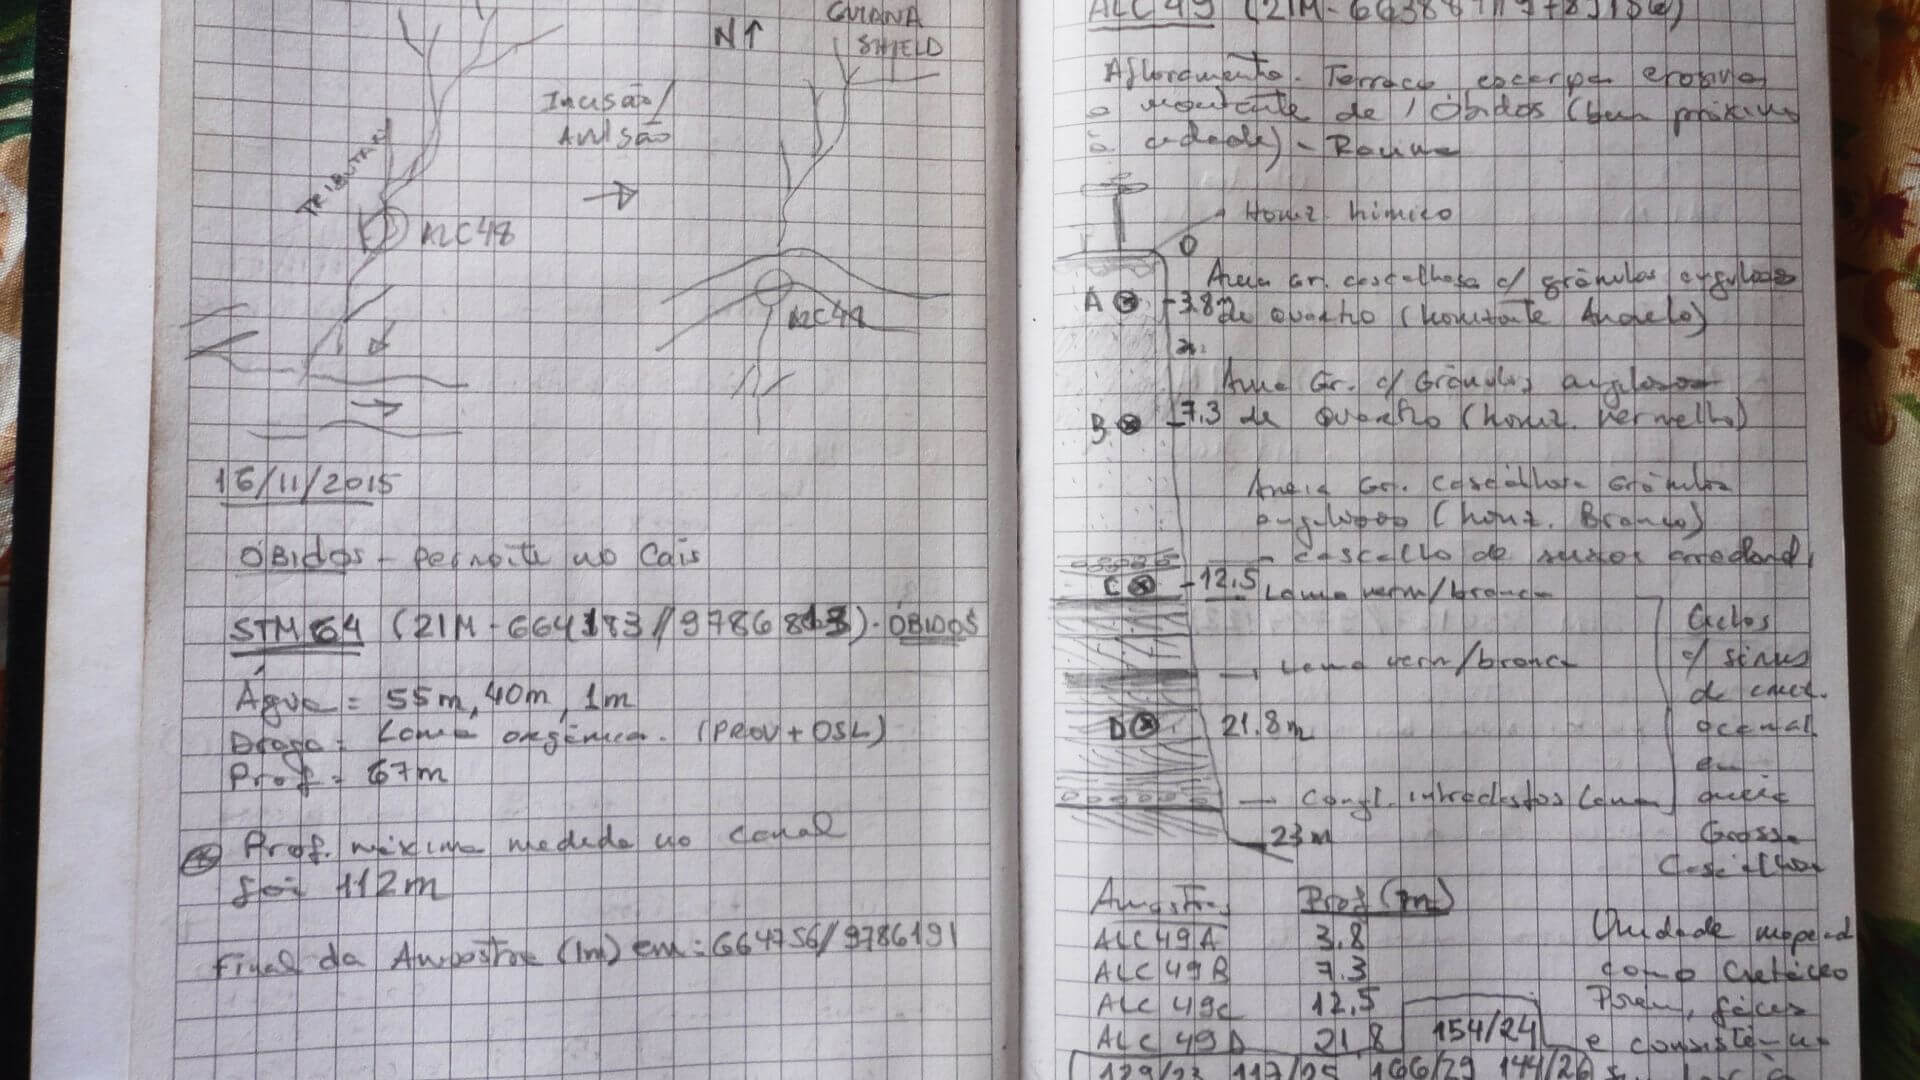 N↑
GUIANA
SHIELD
Incisão/
Avulsão
TRIBUTARY
ALC48
ALC48
16/11/2015
ÓBIDOS - pernoite no Cais
STM 64 (21M - 664183//9786813) - ÓBIDOS
Água = 55m, 40m, 1m
Draga = Lama orgânica. (PROV + OSL)
Prof = 67m
Prof. máxima medida no canal
foi 112m
Final da Amostra (1m) em: 664756/9786191
ALC 49 (21M -
Afloramento - Terraço escarpa erosiva
a montante de Óbidos (bem próximo
à cidade) - Ravina
Horiz. húmico
0
Areia Gr. cascalhosa c/ grânulos angulosos
A - 3.8 de quartzo (horizonte Amarelo)
Areia Gr. c/ Grânulos angulosos
B - 7.3 de quartzo (horiz. vermelho)
Areia Gr. cascalhosa Grânulos
angulosos (horiz. Branco)
cascalho de seixos arredond.
C - 12.5 Lama verm/branca
Lama verm/branca
D 21.8m
Congl. intraclastos Lama
23m
Ciclos
c/
de
em
areia
Grossa
Cascalhosa
Amostra Prof (m)
ALC 49A 3.8
ALC 49B 7.3
ALC 49C 12.5
ALC 49D 21.8
154/24
Unidade mapead
como Cretáceo
Porém, fácies
e
129/23 117/25 166/29 144/26